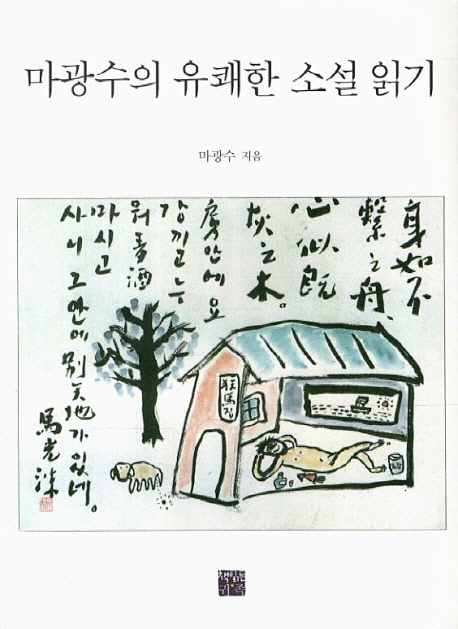 마광수의 유쾌한 소설 읽기
마광수 지음
身如不
繫之舟、
心似旣
灰之木。
房안에 요
강끼고 누
워 酒
마시고
사니 그 안에 別天地가 있네。
馬光洙
狂馬집
책읽는
귀족